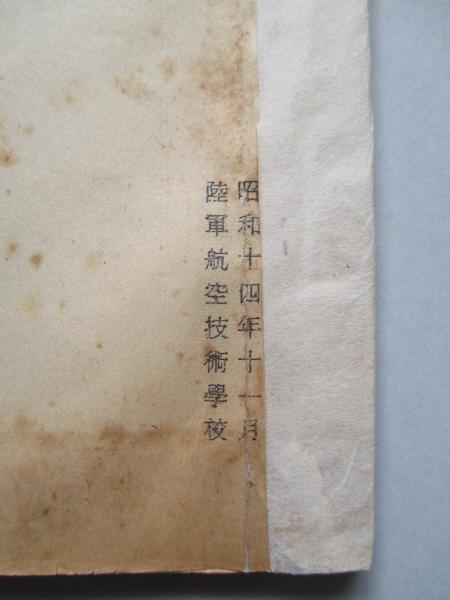 昭和十四年十一月
陸軍航空技術學校